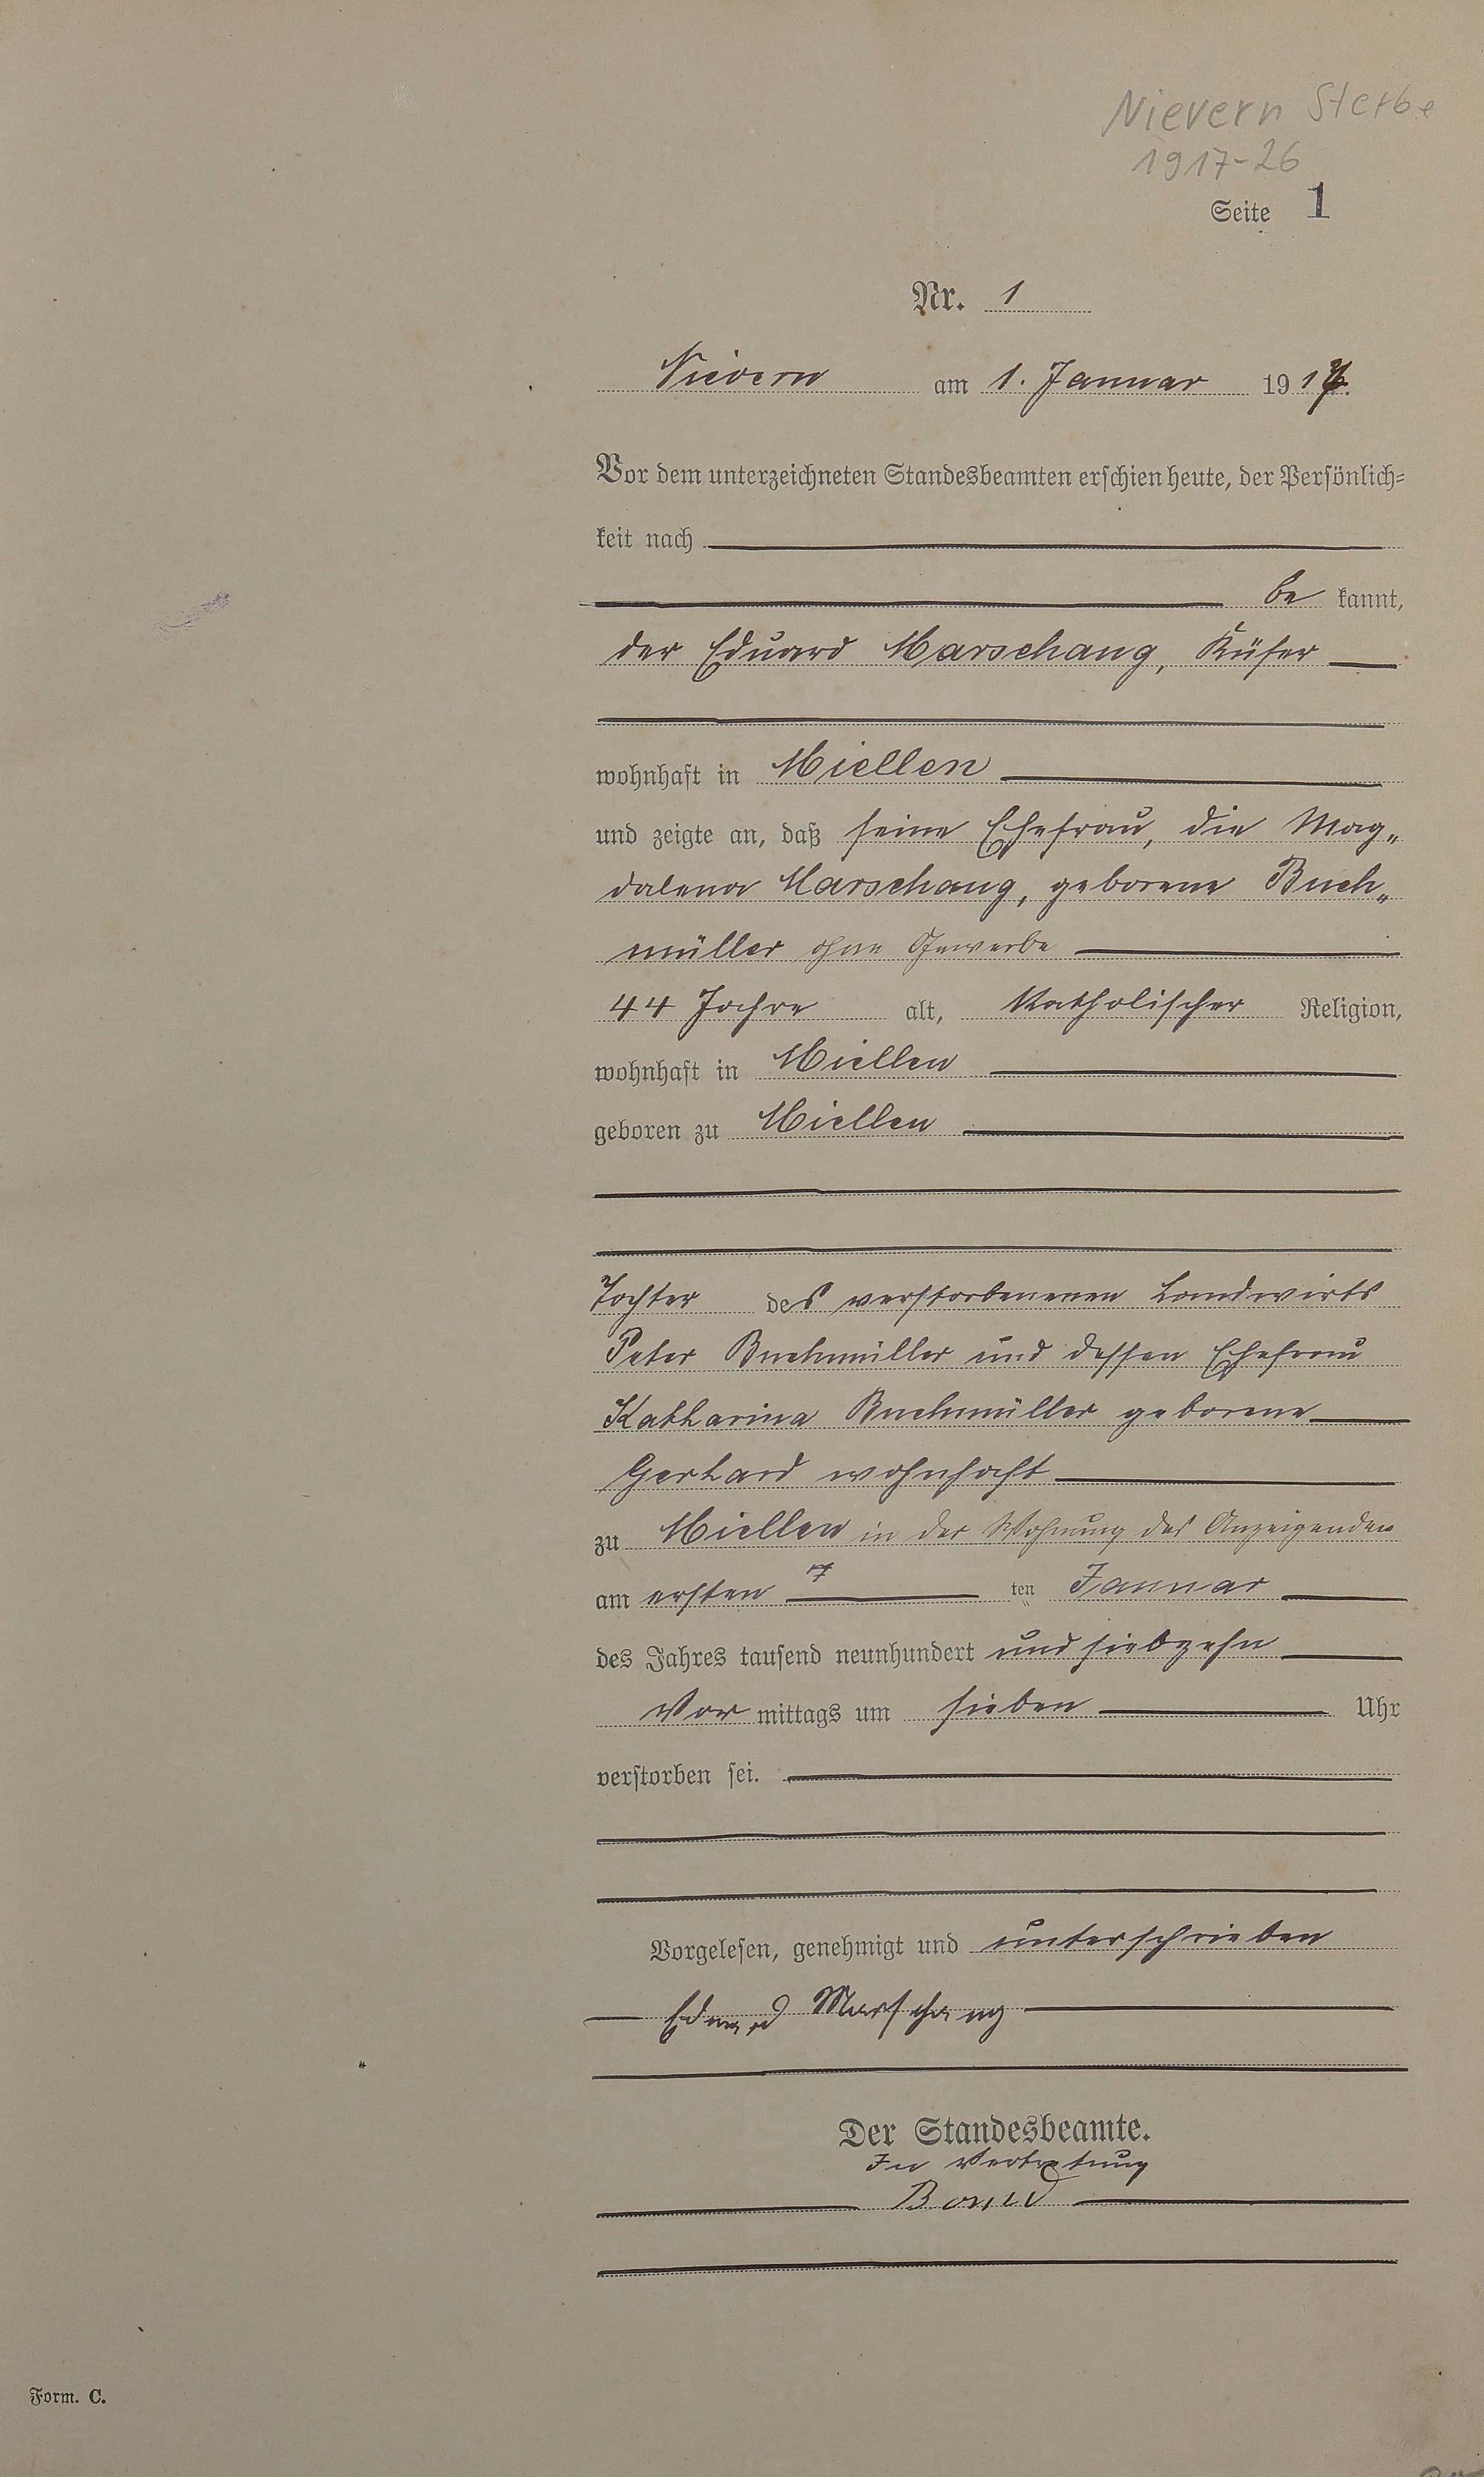 Nievern Sterbe
1917-26
Seite 1
Nr. 1
Nievern am 1. Januar 1917.
Vor dem unterzeichneten Standesbeamten erschien heute, der Persönlich=
keit nach
be kannt,
der Eduard Marschang, Küfer
wohnhaft in Miellen
und zeigte an, daß seine Ehefrau, die Mag„
dalena Marschang, geborene Buch„
müller ohne Gewerbe
44 Jahre alt, Katholischer Religion,
wohnhaft in Miellen
geboren zu Miellen
Tochter des verstorbenenen Landwirts
Peter Buchmüller und dessen Ehefrau
Katharina Buchmüller geborene
Gerhard wohnhaft
zu Miellen in der Wohnung des Anzeigenden
am ersten ten Januar
des Jahres tausend neunhundert und siebzehn
Vor mittags um sieben Uhr
verstorben sei.
Vorgelesen, genehmigt und unterschrieben
Eduard Marschang
Der Standesbeamte.
In Vertretung
Form. C.